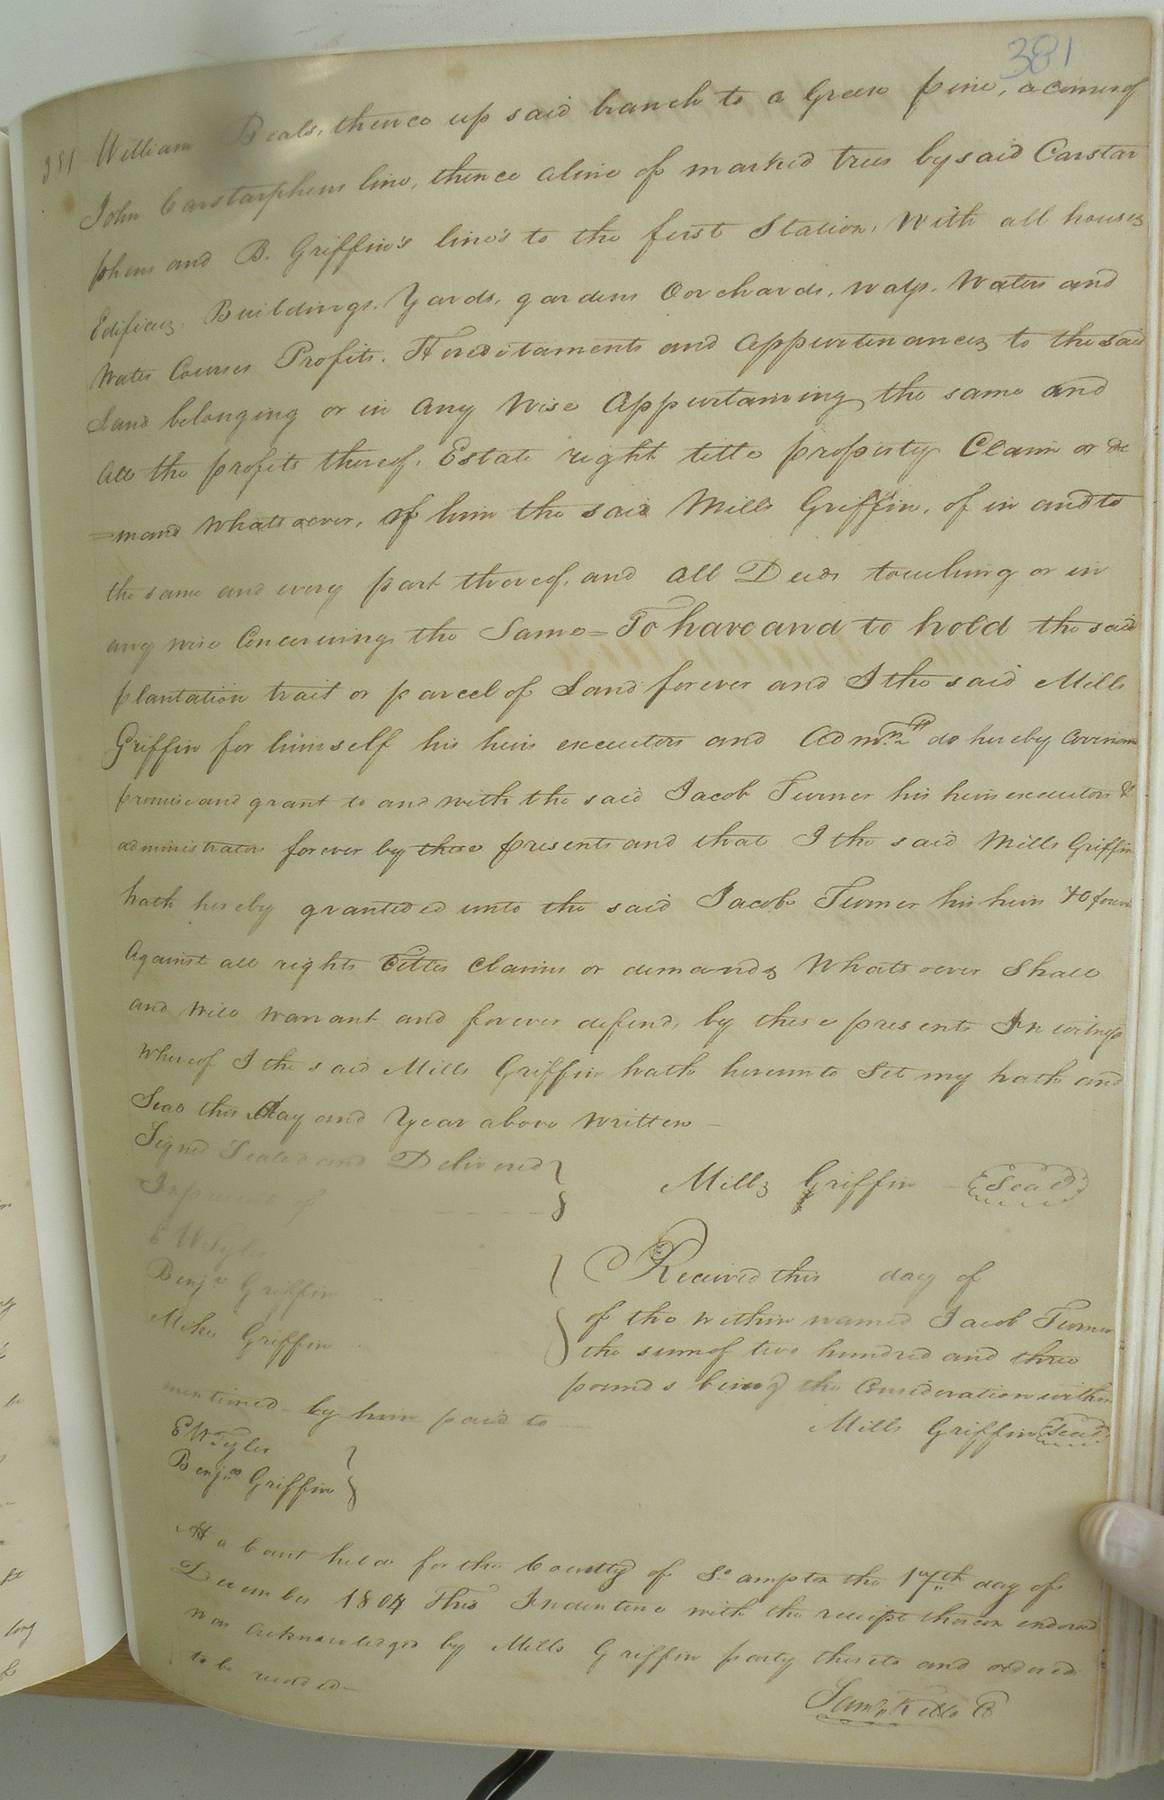 381
381 William Beals, thence up said branch to a Green pine, a corner of
John Carstarphens line, thence a line of marked trees by said Carstar
phens and B. Griffin's line's to the first Station, With all houses
Edifices, Buildings. Yards, gardens Oorchards, ways. Waters and
Water Courses Profits. Hereditaments and Appurtenances to the said
Land belonging or in Any Wise Appurtaining the same and
All the profits thereof, Estate right title property Claim or de
=mand Whatsoever, of him the said Mills Griffin, of in and to
the same and every part thereof, and All Deeds touching or in
any wise Concerning the Same = To have and to hold the said
plantation trait or parcel of Land forever and I the said Mills
Griffin for himself his heirs executors and Admrs do hereby Covinant
promise and grant to and with the said Jacob Turner his heirs executors &
administrators forever by these presents and that I the said Mills Griffin
hath hereby granteded unto the said Jacob Turner his heirs &c forever
Against all rights titles Claims or demands Whatsoever Shall
and will warrant and forever defend, by these presents In witness
Whereof I the said Mills Griffin hath hereunto Set my hath and
Seal this day and Year above Written
Signed Sealed and Delivered
In presence of
Mills Griffin Seal
E W Tyler
Benja Griffin
Miles Griffin
Received this day of
of the within named Jacob Turner
the sum of two hundred and three
pounds being the Consideration within
mentioned by him paid to
Mills Griffin Seal
E W Tyler
Benja Griffin
At a Court held for the County of So ampton the 17th day of
December 1804 This Indenture with the receipt thereon endorsed
was acknowledged by Mills Griffin party thereto and ordered
to be recorded
Saml Kello C